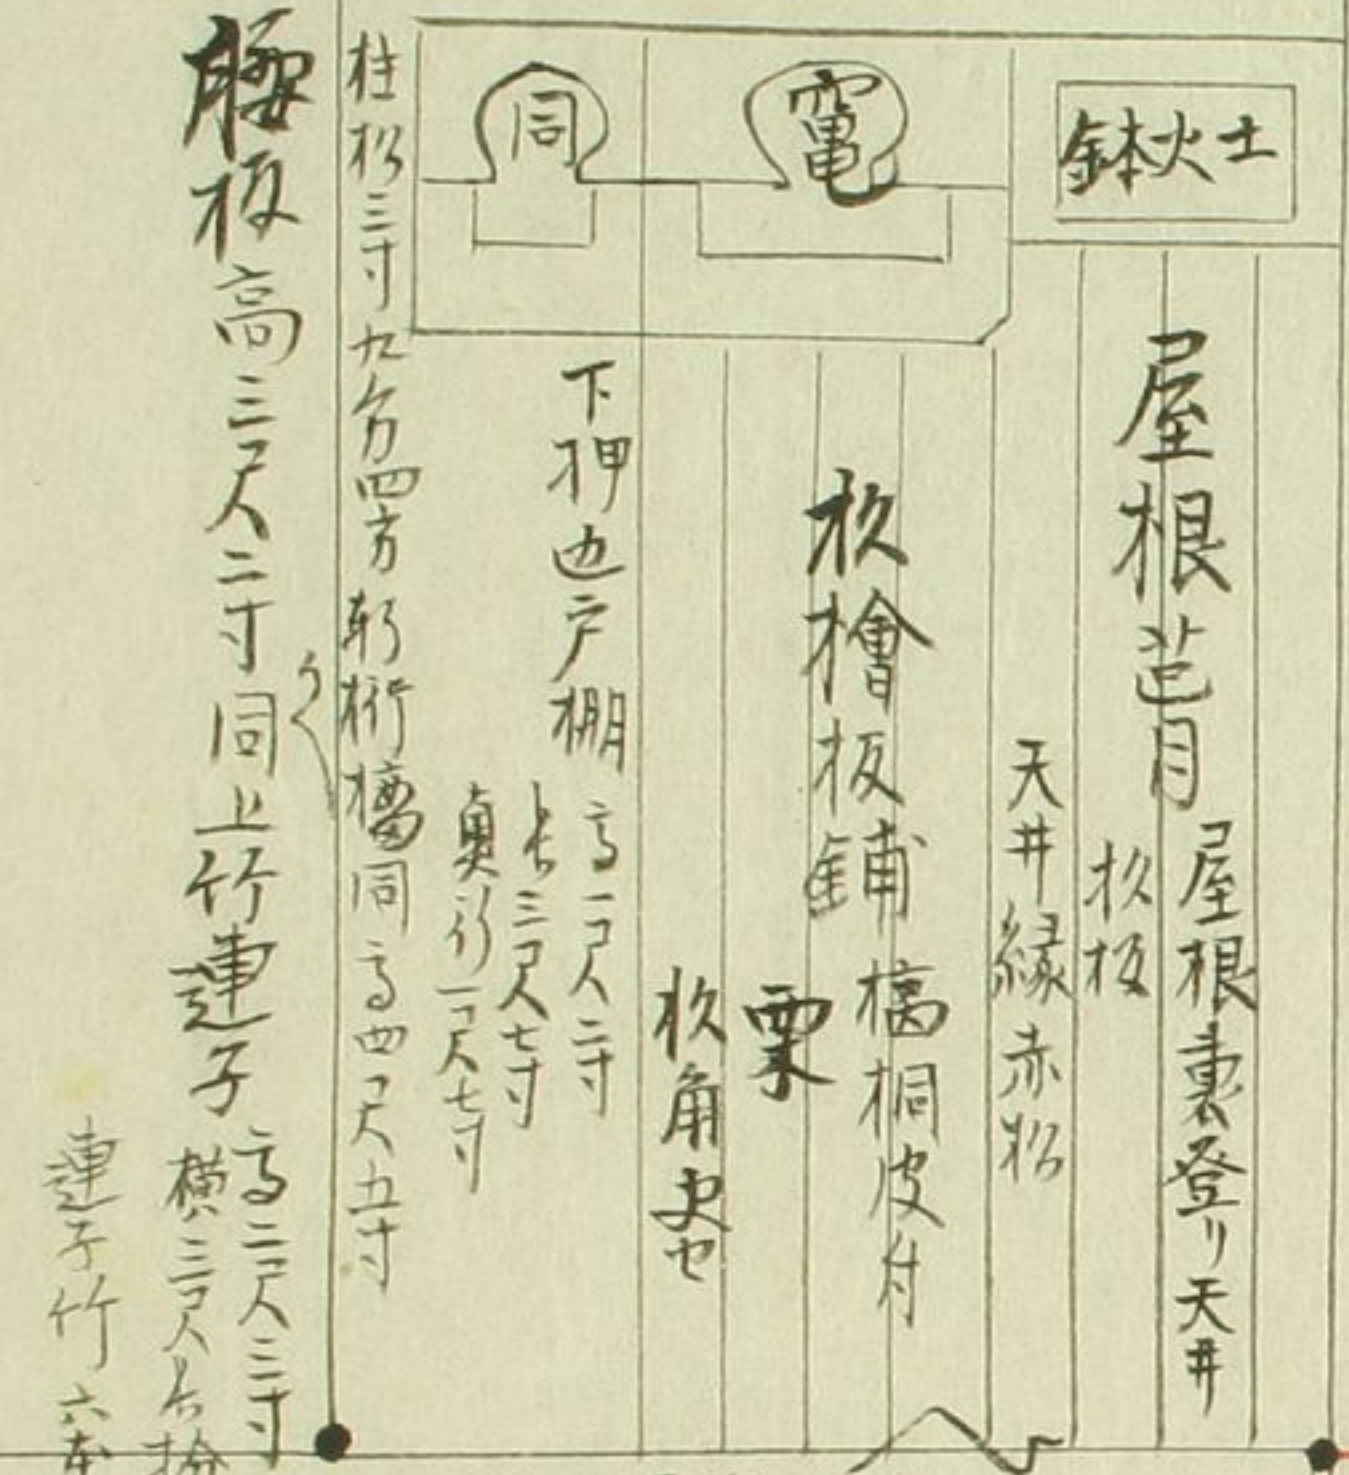 土火鉢
竃
同
屋根芭月
屋根裏登リ天井
杦板
天井縁赤松
杦檜板舗
槁桐皮付
栗
杦角
下押込戸棚
高一尺二寸
長三尺七寸
奥行一尺七寸
柱杉三寸九分四方
桁
同高四尺五寸
腰板高三尺二寸同上竹連子
高二尺三寸
横三尺
連子竹六本